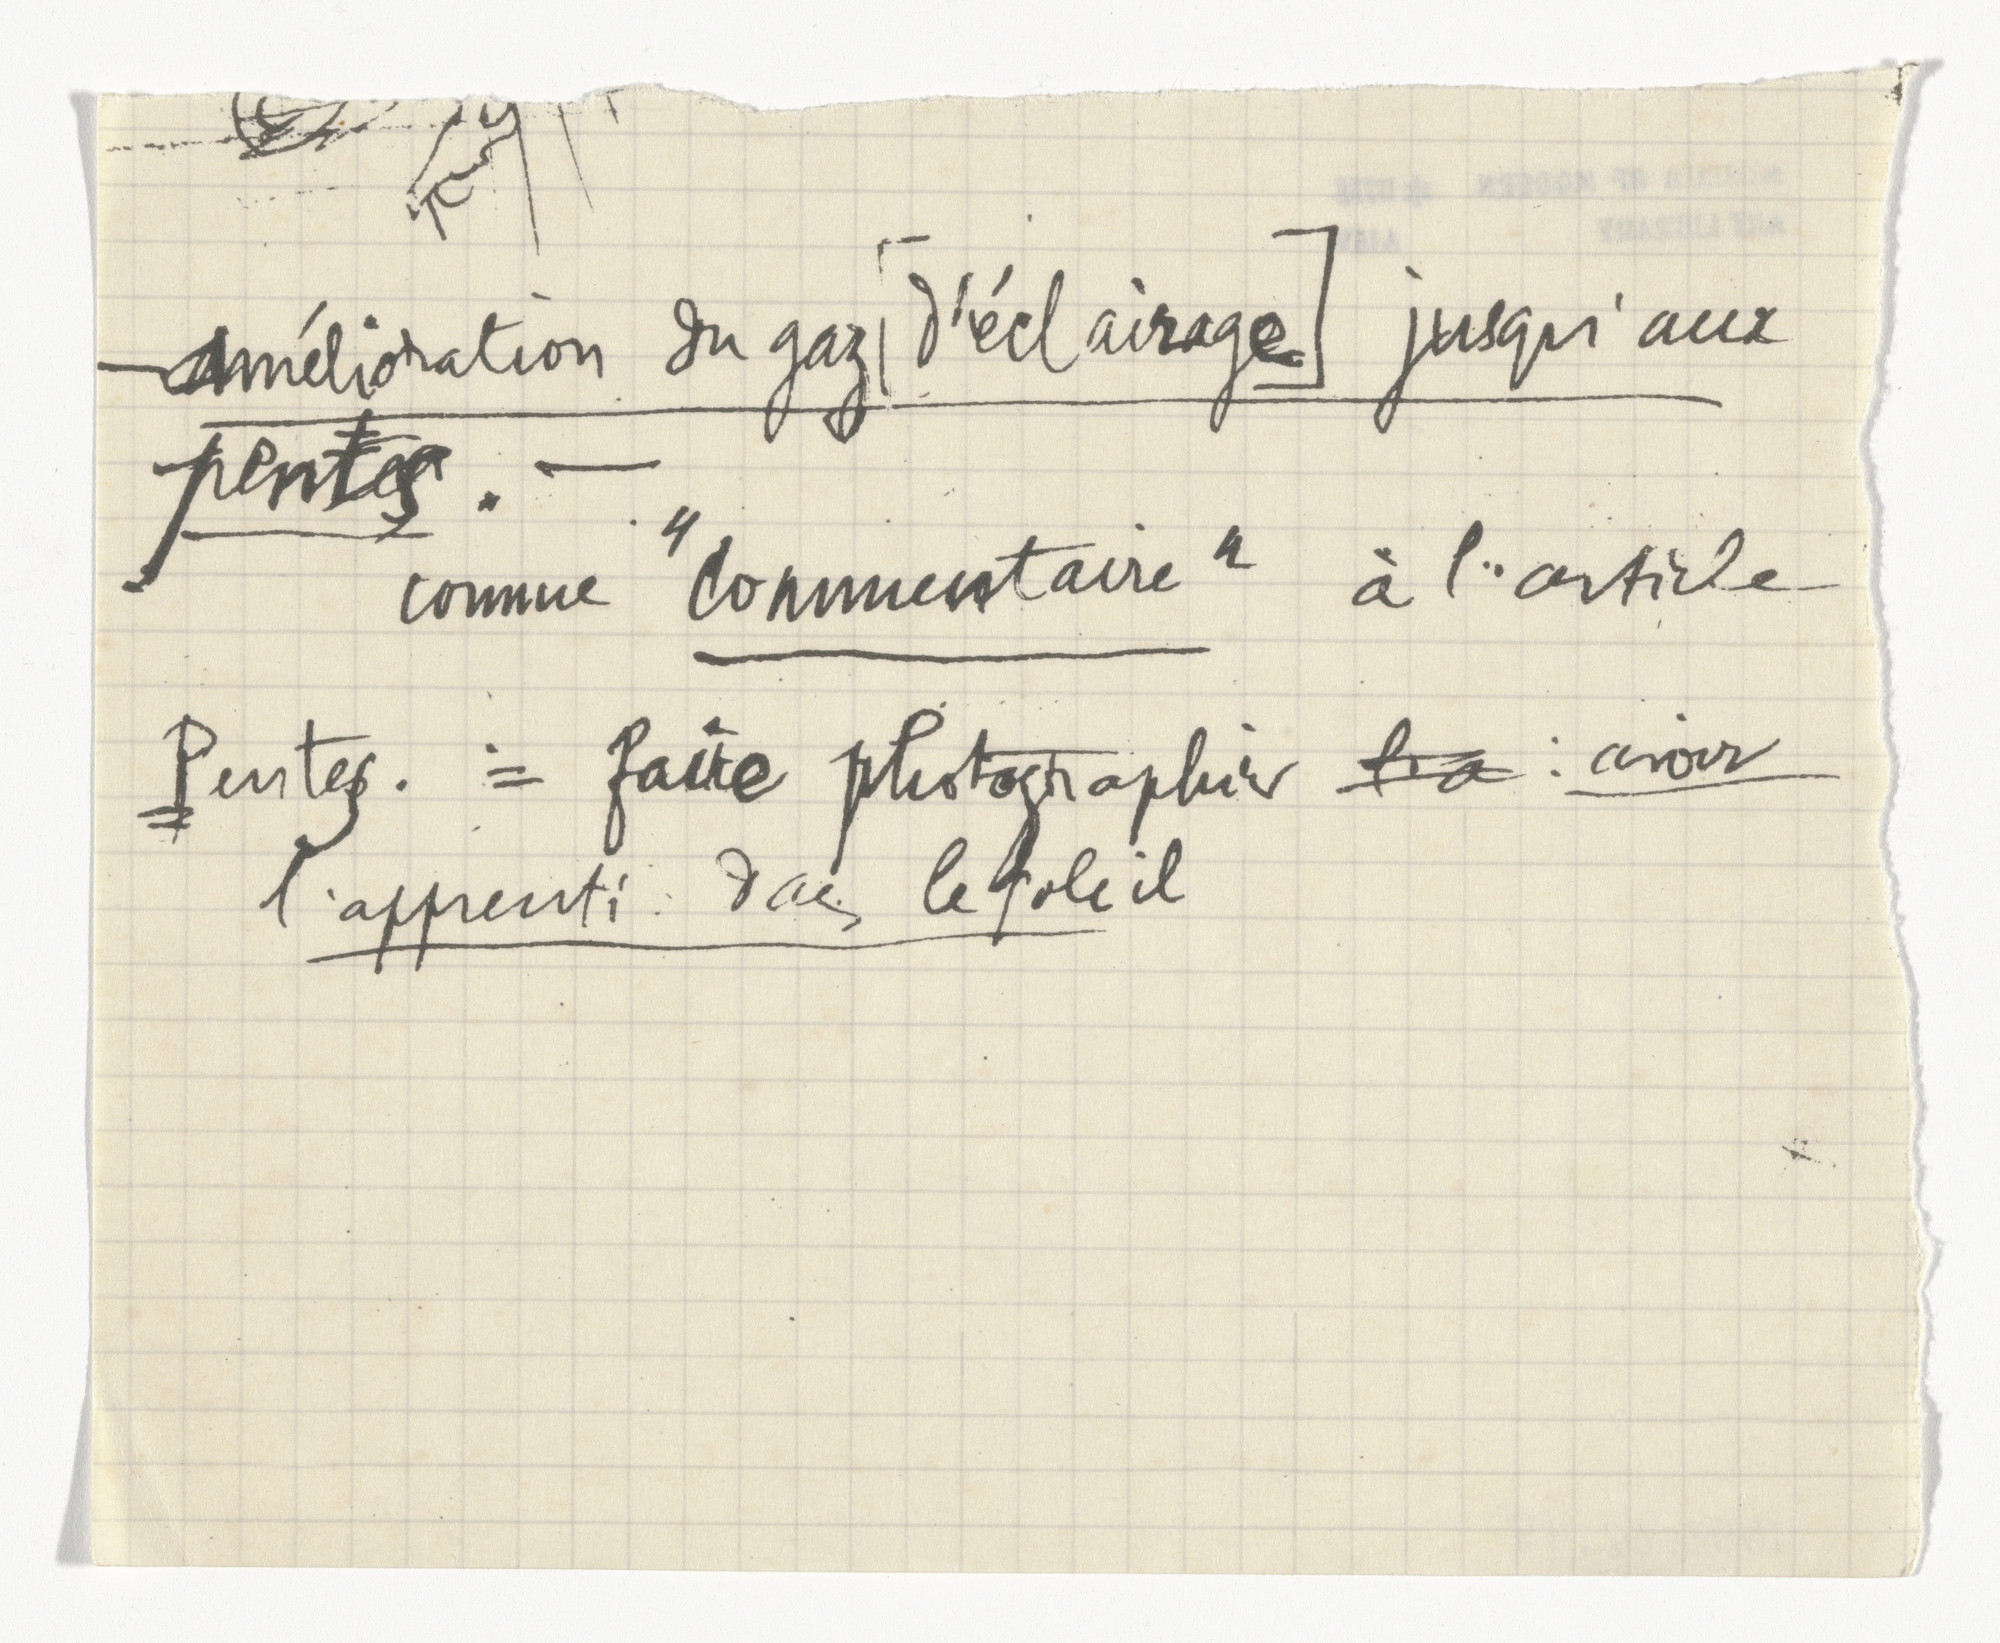 — Amélioration du gaz [d'éclairage] jusqu'aux
pentes. —
comme "Commentaire" à l'article
Pentes. = faire photographier : avoir
l'apprenti dans le soleil